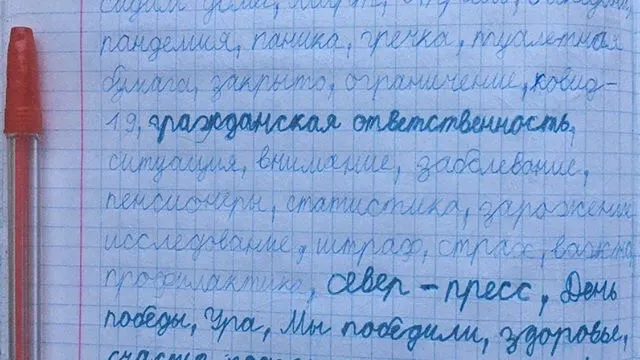 сидим дома,
пандемия, паника, гречка, туалетная
бумага, закрыто, ограничение, ковид-
19, гражданская ответственность,
ситуация, внимание, заболевание,
пенсионеры, статистика, заражение
исследование, штраф, страх, важно,
профилактика, север-пресс, День
победы, Ура, Мы победили, здоровье,
счастье